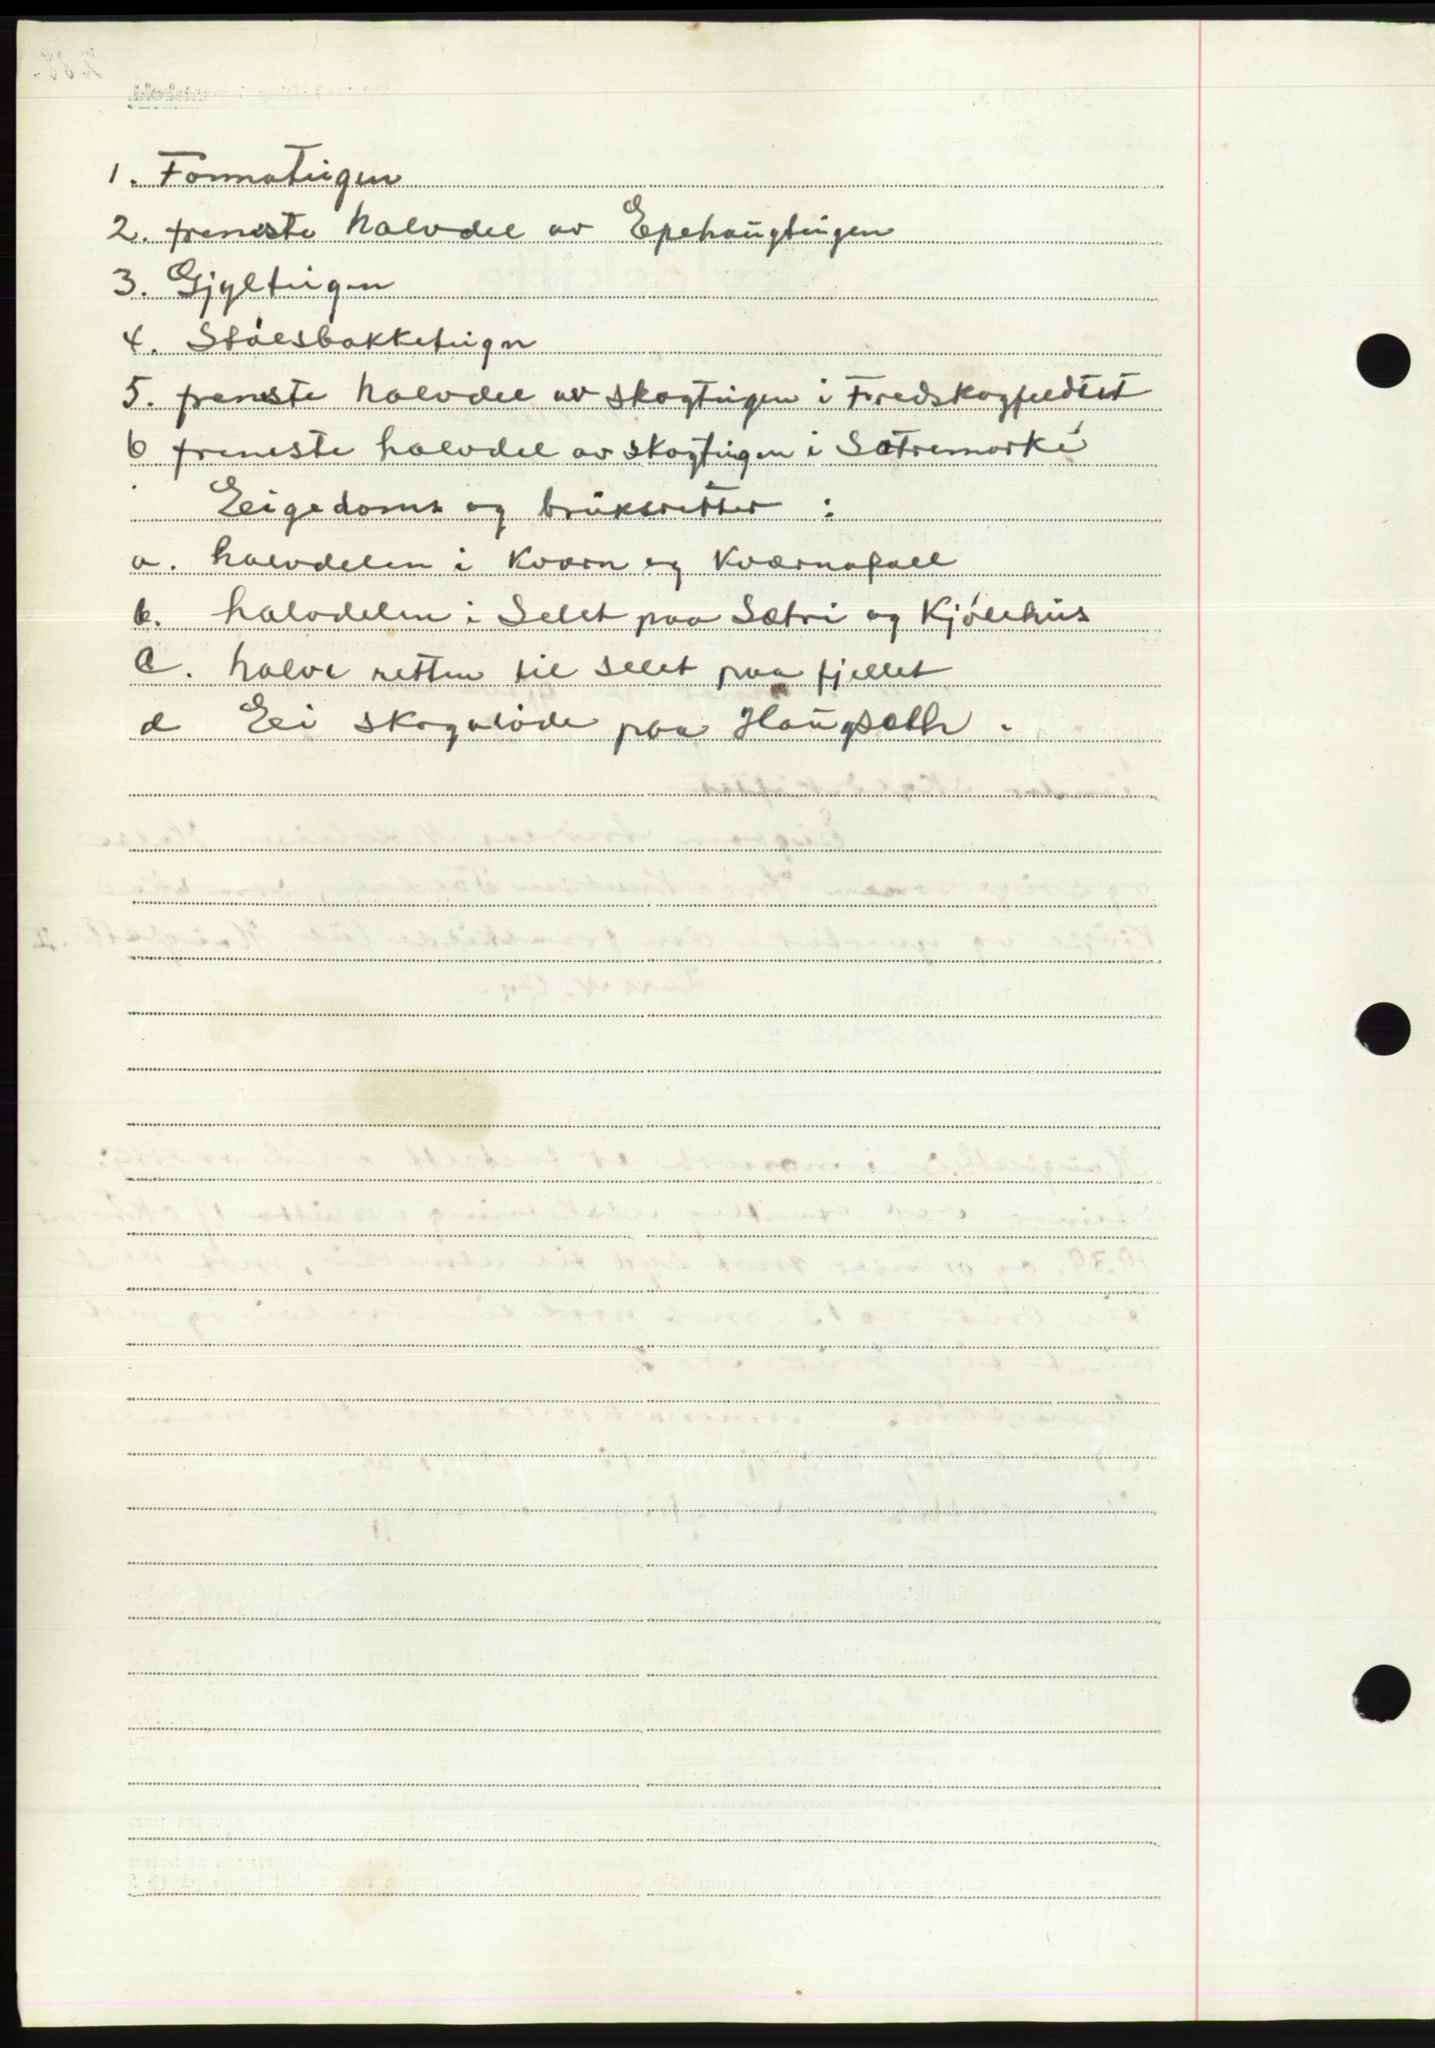 1. Formateigen
2. fremste halvdel av Epehaugteigen
3. Gjylteigen
4. Stólsbakketeign
5. fremste halvdel av skogteigen i Fredskogfeldtet
6 fremste halvdel av skogteigen i Sætremarké
Eigedoms og bruksretter :
a. halvdelen i Kvorn og Kværnafall
b. halvdelen i Selet paa Sætri og Kjólehus
c. halve retten til selet paa fjellet
d Ei skogalóde paa Haugseth .